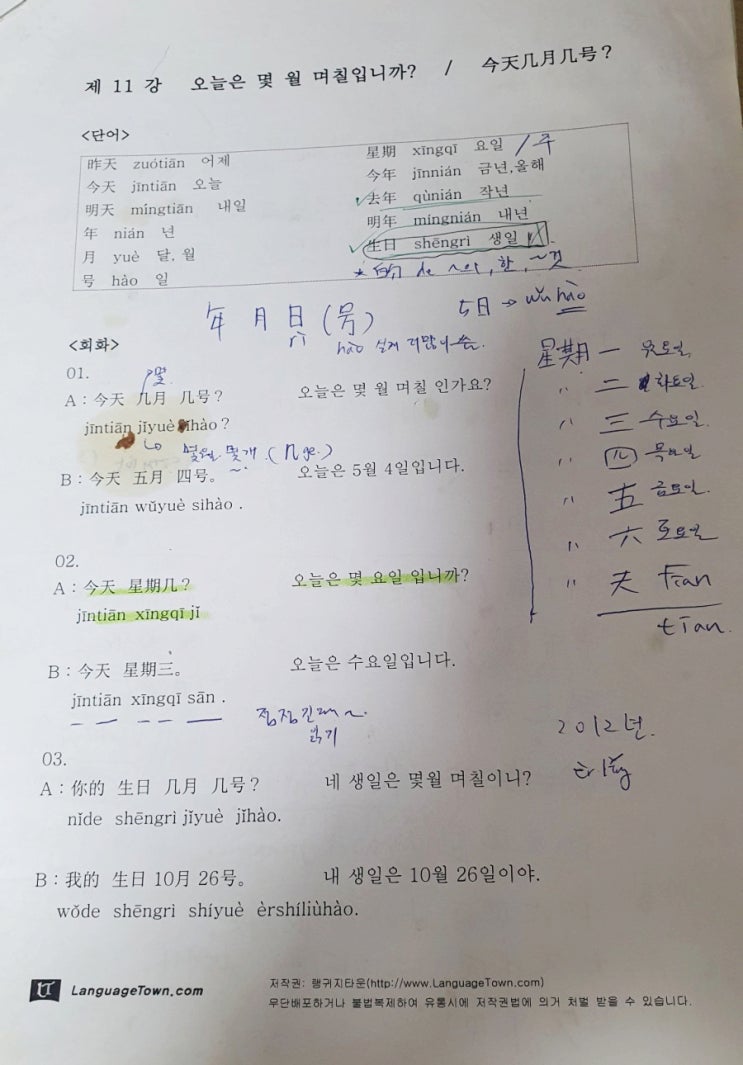 제 11 강 오늘은 몇 월 며칠입니까? / 今天几月几号?
<단어>
昨天 zuótiān 어제
今天 jīntiān 오늘
明天 míngtiān 내일
年 nián 년
月 yuè 달, 월
号 hào 일
星期 xīngqī 요일 / 주
今年 jīnnián 금년,올해
去年 qùnián 작년
明年 míngnián 내년
生日 shēngrì 생일
* 的 de ~의, 한, ~것
年 月 日 (号)
rì
hào 실제 더많이 씀.
5日 → wǔ hào
<회화>
01.
몇
A : 今天 几月 几号? 오늘은 몇 월 며칠 인가요?
jīntiān jǐyuè jǐhào?
몇월. 몇개. (几 ge.)
B : 今天 五月 四号。 오늘은 5월 4일입니다.
jīntiān wǔyuè sìhào .
星期 一 월요일
" 二 화요일
" 三 수요일
" 四 목요일
" 五 금요일
" 六 토요일
" 天 tian
tian.
02.
A : 今天 星期几? 오늘은 몇 요일 입니까?
jīntiān xīngqī jǐ
B : 今天 星期三。 오늘은 수요일입니다.
jīntiān xīngqī sān .
읽기
2012년.
03.
A : 你的 生日 几月 几号? 네 생일은 몇월 며칠이니?
nǐde shēngrì jǐyuè jǐhào.
B : 我的 生日 10月 26号。 내 생일은 10월 26일이야.
wǒde shēngrì shíyuè èrshíliùhào.
LanguageTown.com
저작권: 랭귀지타운(http://www.LanguageTown.com)
무단배포하거나 불법복제하여 유통시에 저작권법에 의거 처벌 받을 수 있습니다.